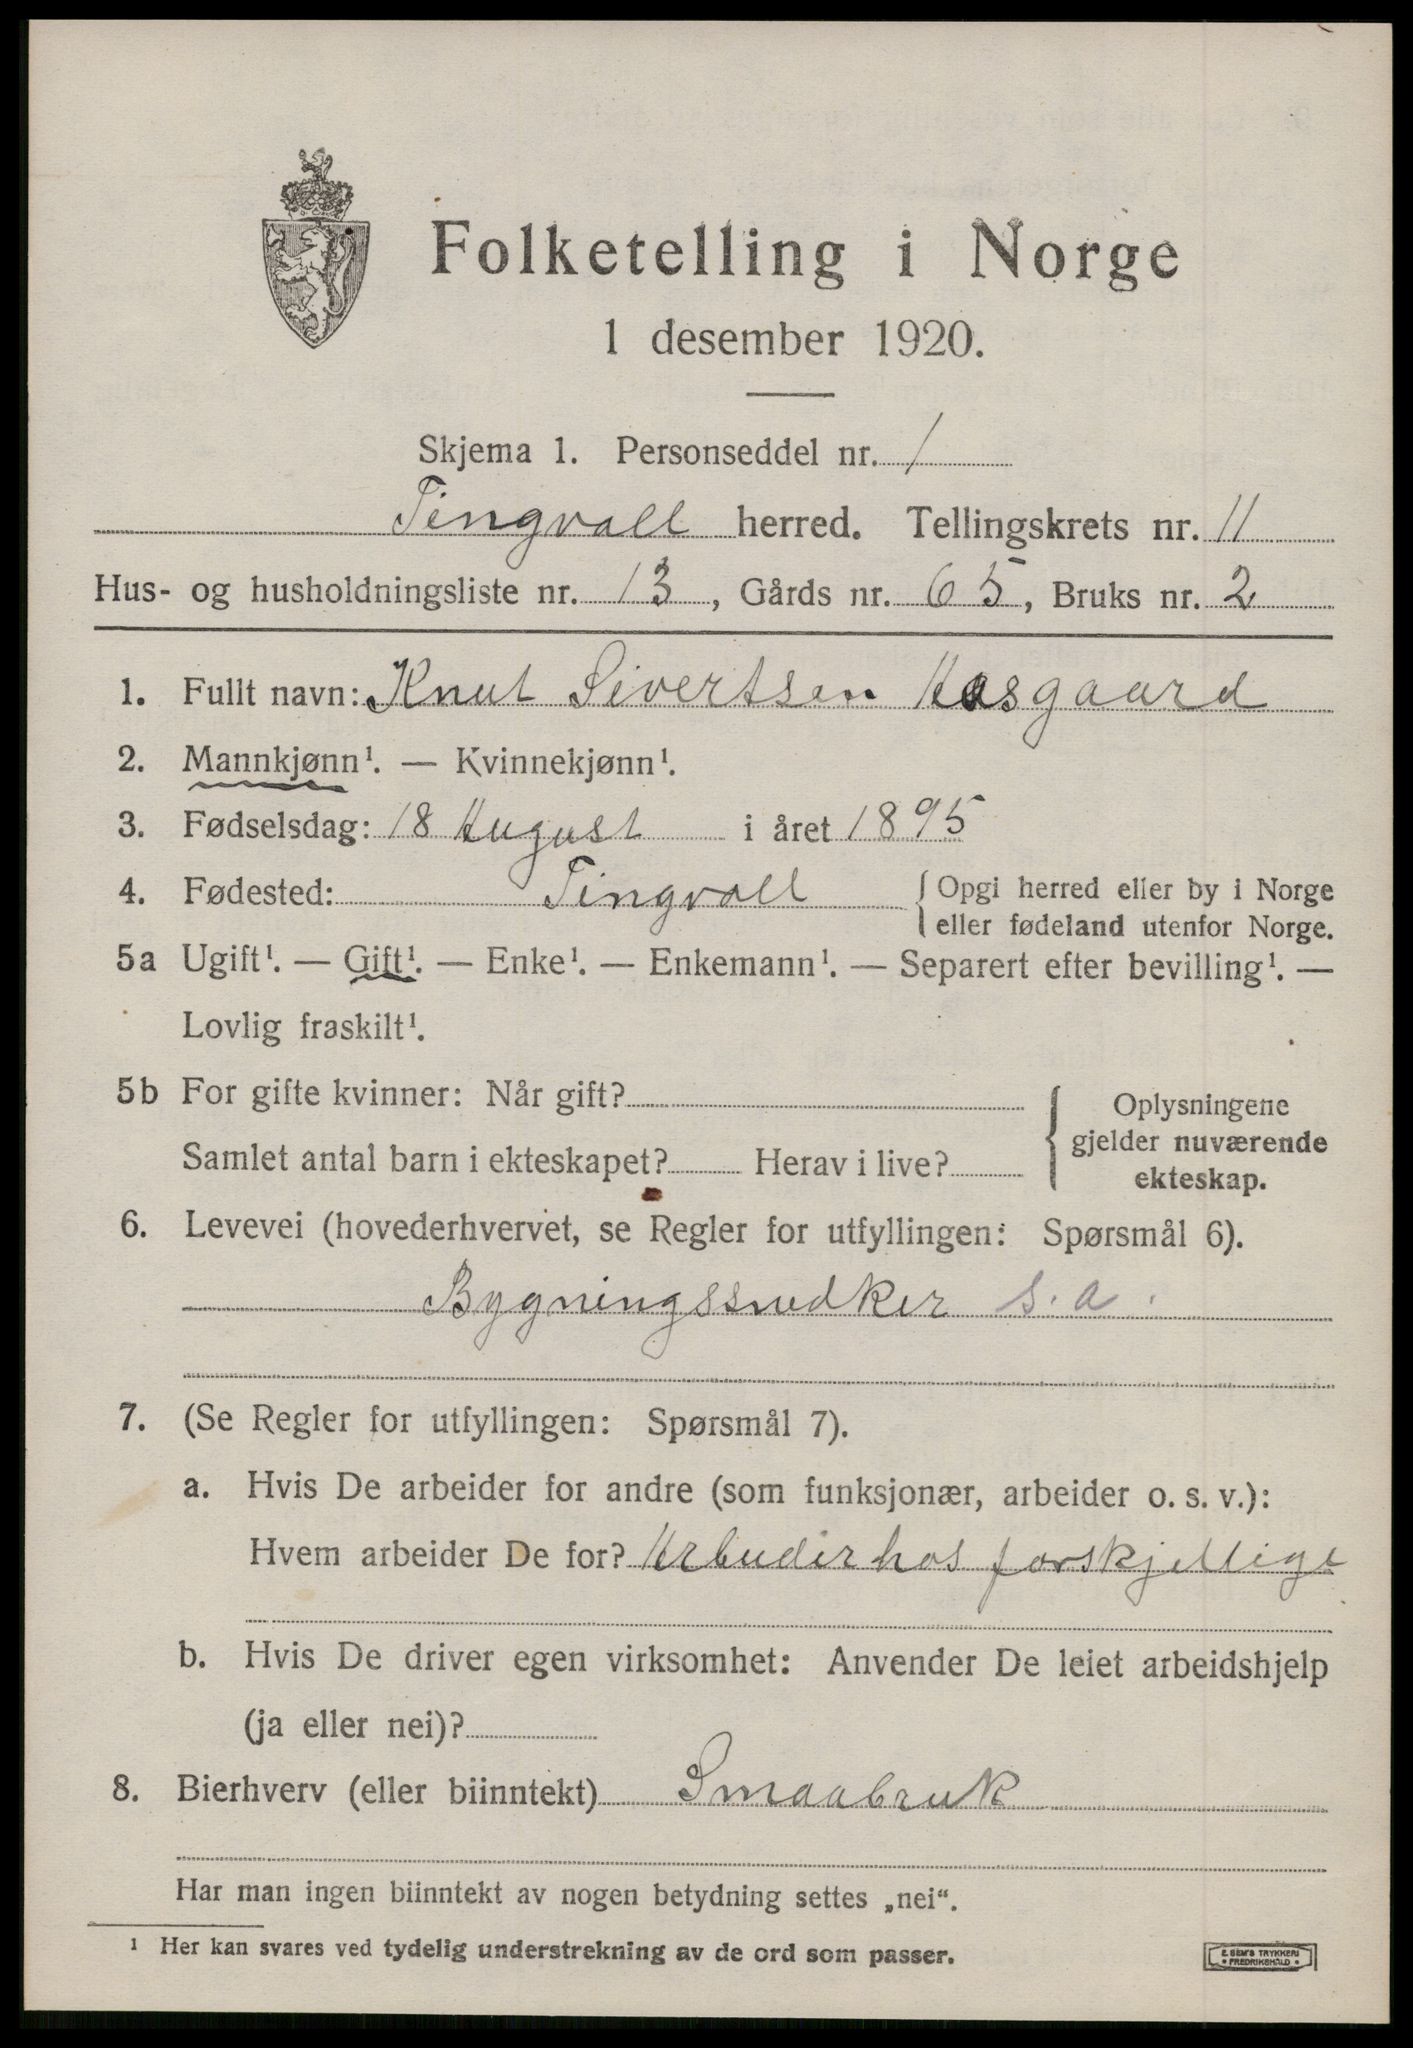 Folketelling i Norge
1 desember 1920.
Skjema 1. Personseddel nr. 1
Tingvoll herred. Tellingskrets nr. 11
Hus- og husholdningsliste nr. 13, Gårds nr. 65, Bruks nr. 2
1. Fullt navn: Knut Sivertsen Aasgaard
2. Mannkjønn¹. — Kvinnekjønn¹.
3. Fødselsdag: 18 August i året 1895
4. Fødested: Tingvoll { Opgi herred eller by i Norge
eller fødeland utenfor Norge.
5a Ugift¹. — Gift¹. — Enke¹. — Enkemann¹. — Separert efter bevilling¹. —
Lovlig fraskilt¹.
5b For gifte kvinner: Når gift? { Oplysningene
gjelder nuværende
Samlet antal barn i ekteskapet? Herav i live?
ekteskap.
6. Levevei (hovederhvervet, se Regler for utfyllingen: Spørsmål 6).
Bygningssnedker s.a.
7. (Se Regler for utfyllingen: Spørsmål 7).
a. Hvis De arbeider for andre (som funksjonær, arbeider o. s. v.):
Hvem arbeider De for? Arbeider hos forskjellige
b. Hvis De driver egen virksomhet: Anvender De leiet arbeidshjelp
(ja eller nei)?
8. Bierhverv (eller biinntekt) Smaabruk
Har man ingen biinntekt av nogen betydning settes „nei“.
¹ Her kan svares ved tydelig understrekning av de ord som passer.
E. SEM'S TRYKKERI
• FREDRIKSHALD •